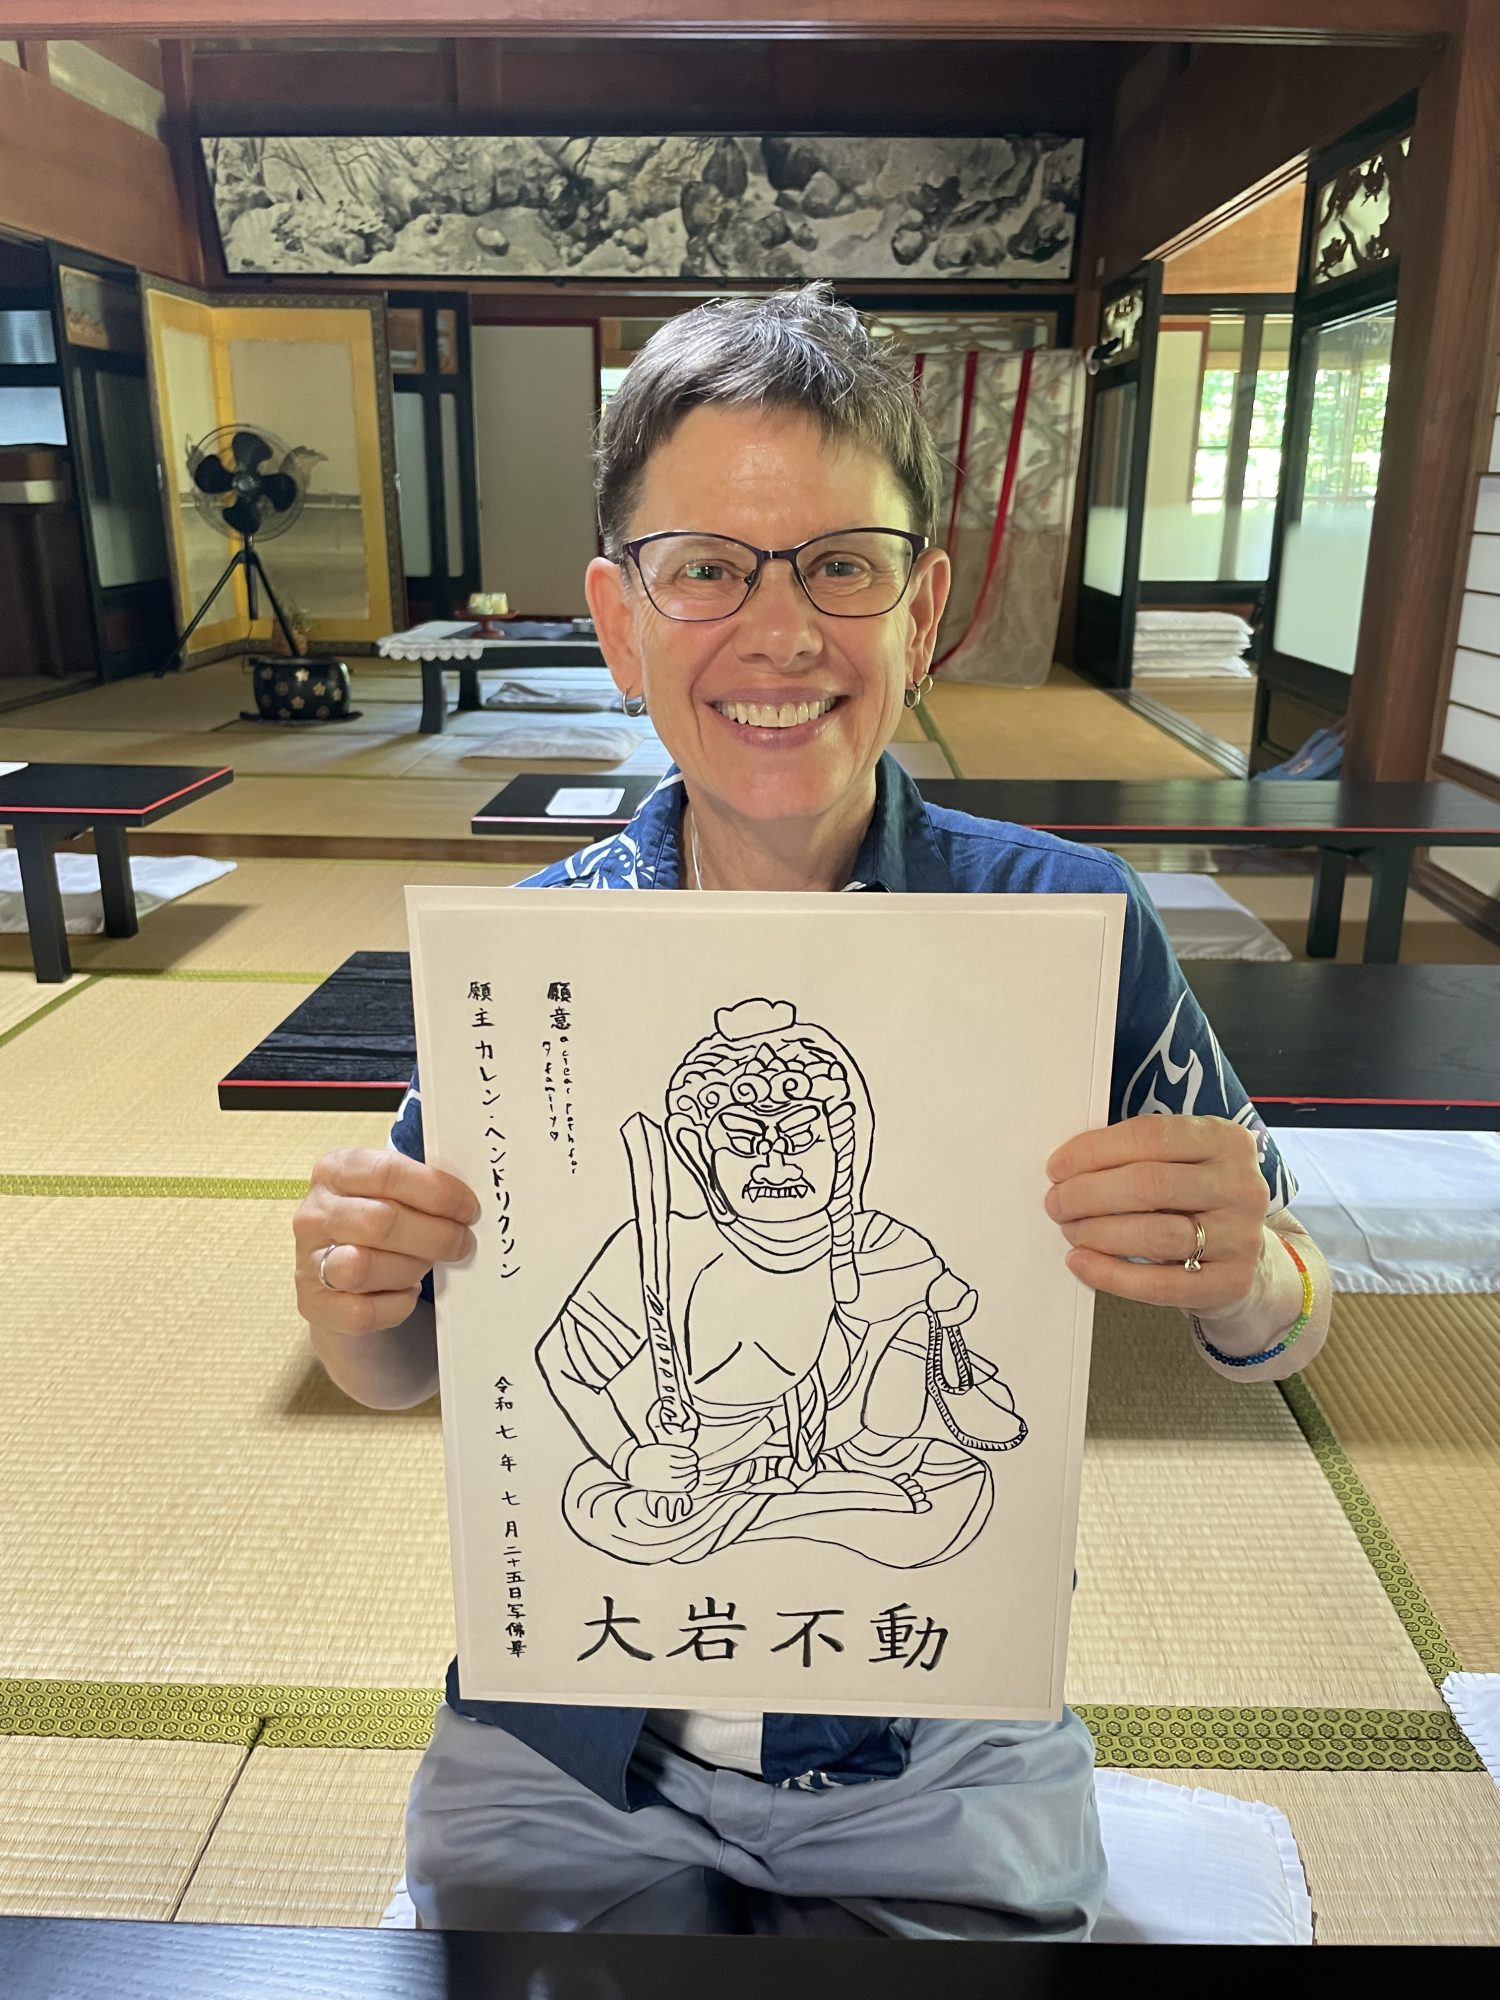 願意 a clear path for
family♡
願主 カレン・ヘンドリクソン
令和七年七月二十五日写佛畢
大岩不動